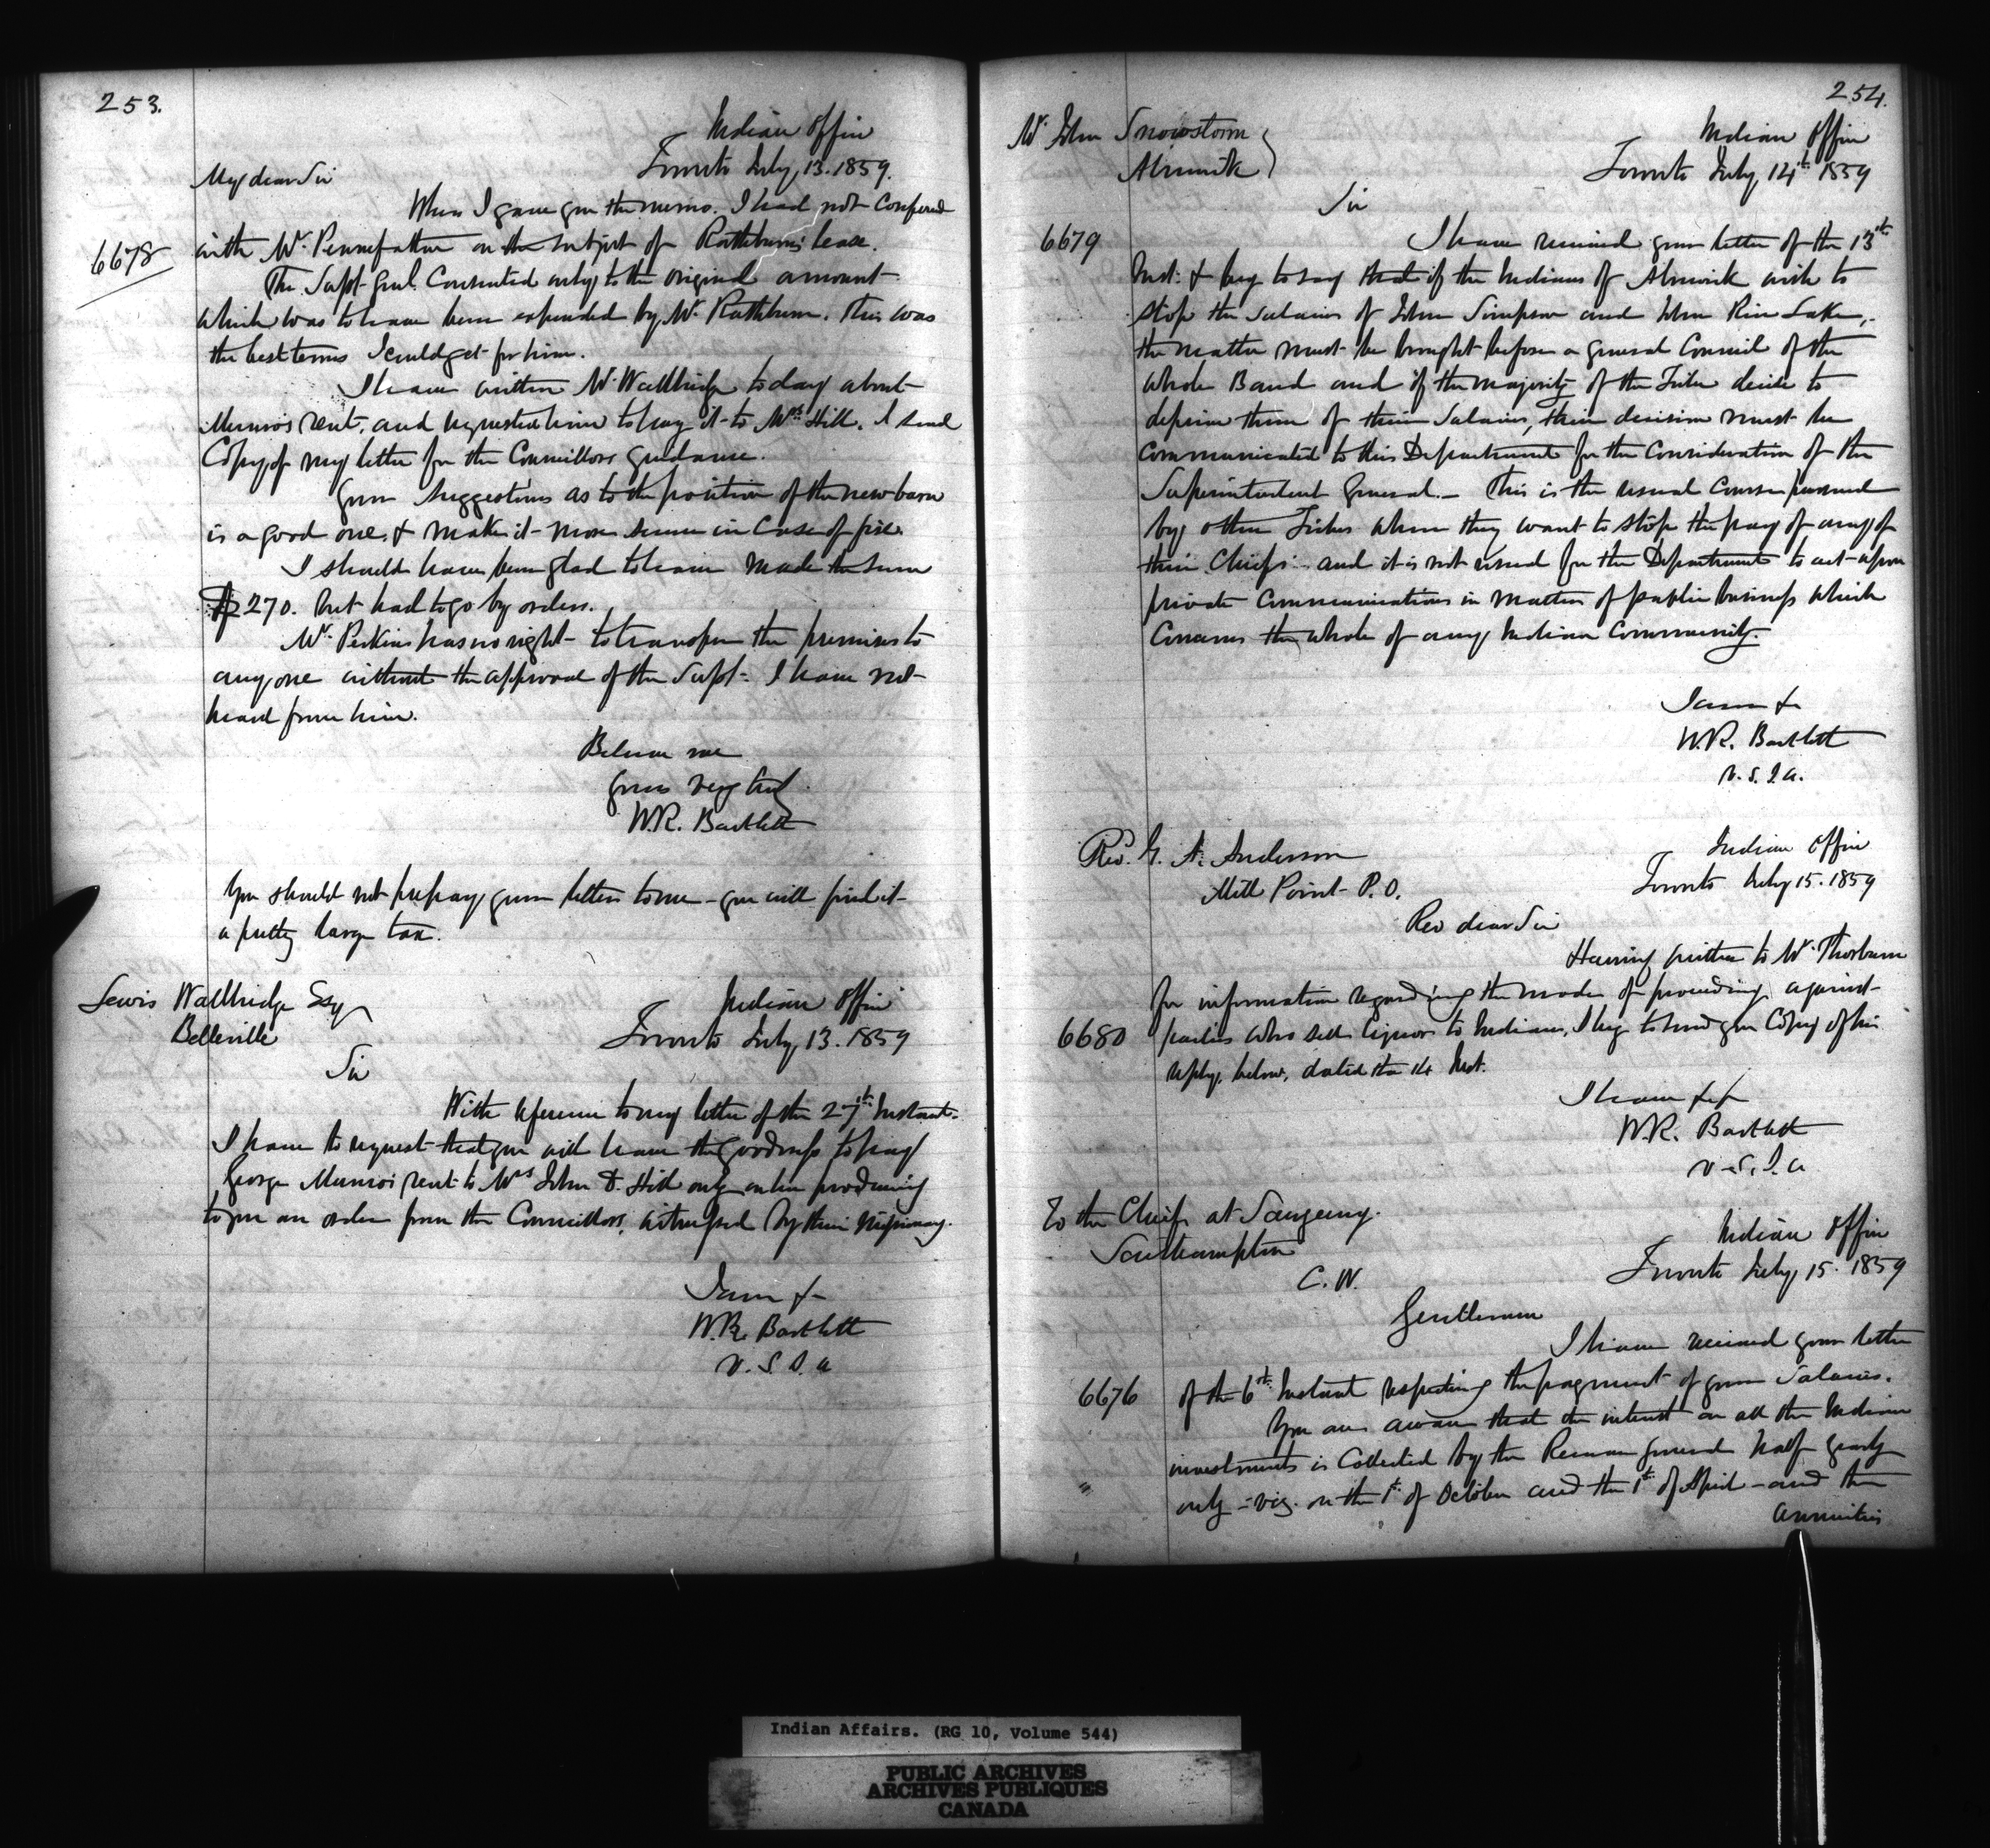 253.
Indian Office
Toronto July 13. 1859.
My dear Sir
When I gave you the memo. I had not Conferred
6678
with Mr. Pennefather on the subject of Rathbun's lease.
The Supt. Genl. Consented only to the original amount
which was to have been expended by Mr. Rathbun. This was
the best terms I could get for him.
I have written Mr. Wallbridge to day about
Munro's rent, and requested him to pay it to Mrs. Hill. I send
Copy of my letter for the Councillors guidance.
Your suggestions as to the position of the new barn
is a good one, & makes it more secure in Case of fire.
I should have been glad to have made the sum
$270. but had to go by orders.
Mr. Perkins has no right to transfer the premises to
any one without the approval of the Supt. I have not
heard from him.
Believe me
Yours very truly
W.R. Bartlett
You should not prepay your letters to me - you will find it
a pretty large tax.
Lewis Wallbridge Esq
Belleville
Indian Office
Toronto July 13. 1859
Sir
With reference to my letter of the 27th Instant.
I have to request that you will have the goodness to pay
George Munro's rent to Mrs John D. Hill only on her producing
to you an order from the Councillors, witnessed by their Missionary.
I am &
W.R. Bartlett
V. S. I. A
254.
Mr. John Snowstorm
Alnwick
Indian Office
Toronto July 14th 1859
Sir
6679
I have received your letter of the 13th
Inst: & beg to say that if the Indians of Alnwick wish to
stop the Salaries of John Simpson and John Rice Lake,
the matter must be brought before a general Council of the
whole Band and if the majority of the Tribe decide to
deprive them of their Salaries, their decision must be
Communicated to this Department for the Consideration of the
Superintendent General. - This is the usual Course pursued
by other Tribes when they want to stop the pay of any of
their Chiefs - and it is not usual for the Department to act upon
private Communications in matters of public business which
Concerns the whole of any Indian Community.
I am &
W.R. Bartlett
V. S. I. A.
Revd. G. A. Anderson
Mill Point P.O.
Indian Office
Toronto July 15. 1859
Rev dear Sir
Having written to Mr. Thorburn
for information regarding the mode of proceeding against
6680
parties who sell liquor to Indians, I beg to send you Copy of his
reply, below, dated the 14 Inst.
I have &c &
W.R. Bartlett
V. S. I. A
To the Chiefs at Saugeeng.
Southampton
C. W.
Indian Office
Toronto July 15. 1859
Gentlemen
I have received your letter
6676
of the 6th Instant respecting the payment of your Salaries.
You are aware that the interest on all the Indian
investments is Collected by the Receiver General half yearly
only - viz. on the 1st of October and the 1st of April - and the
annuities
Indian Affairs. (RG 10, Volume 544)
PUBLIC ARCHIVES
ARCHIVES PUBLIQUES
CANADA